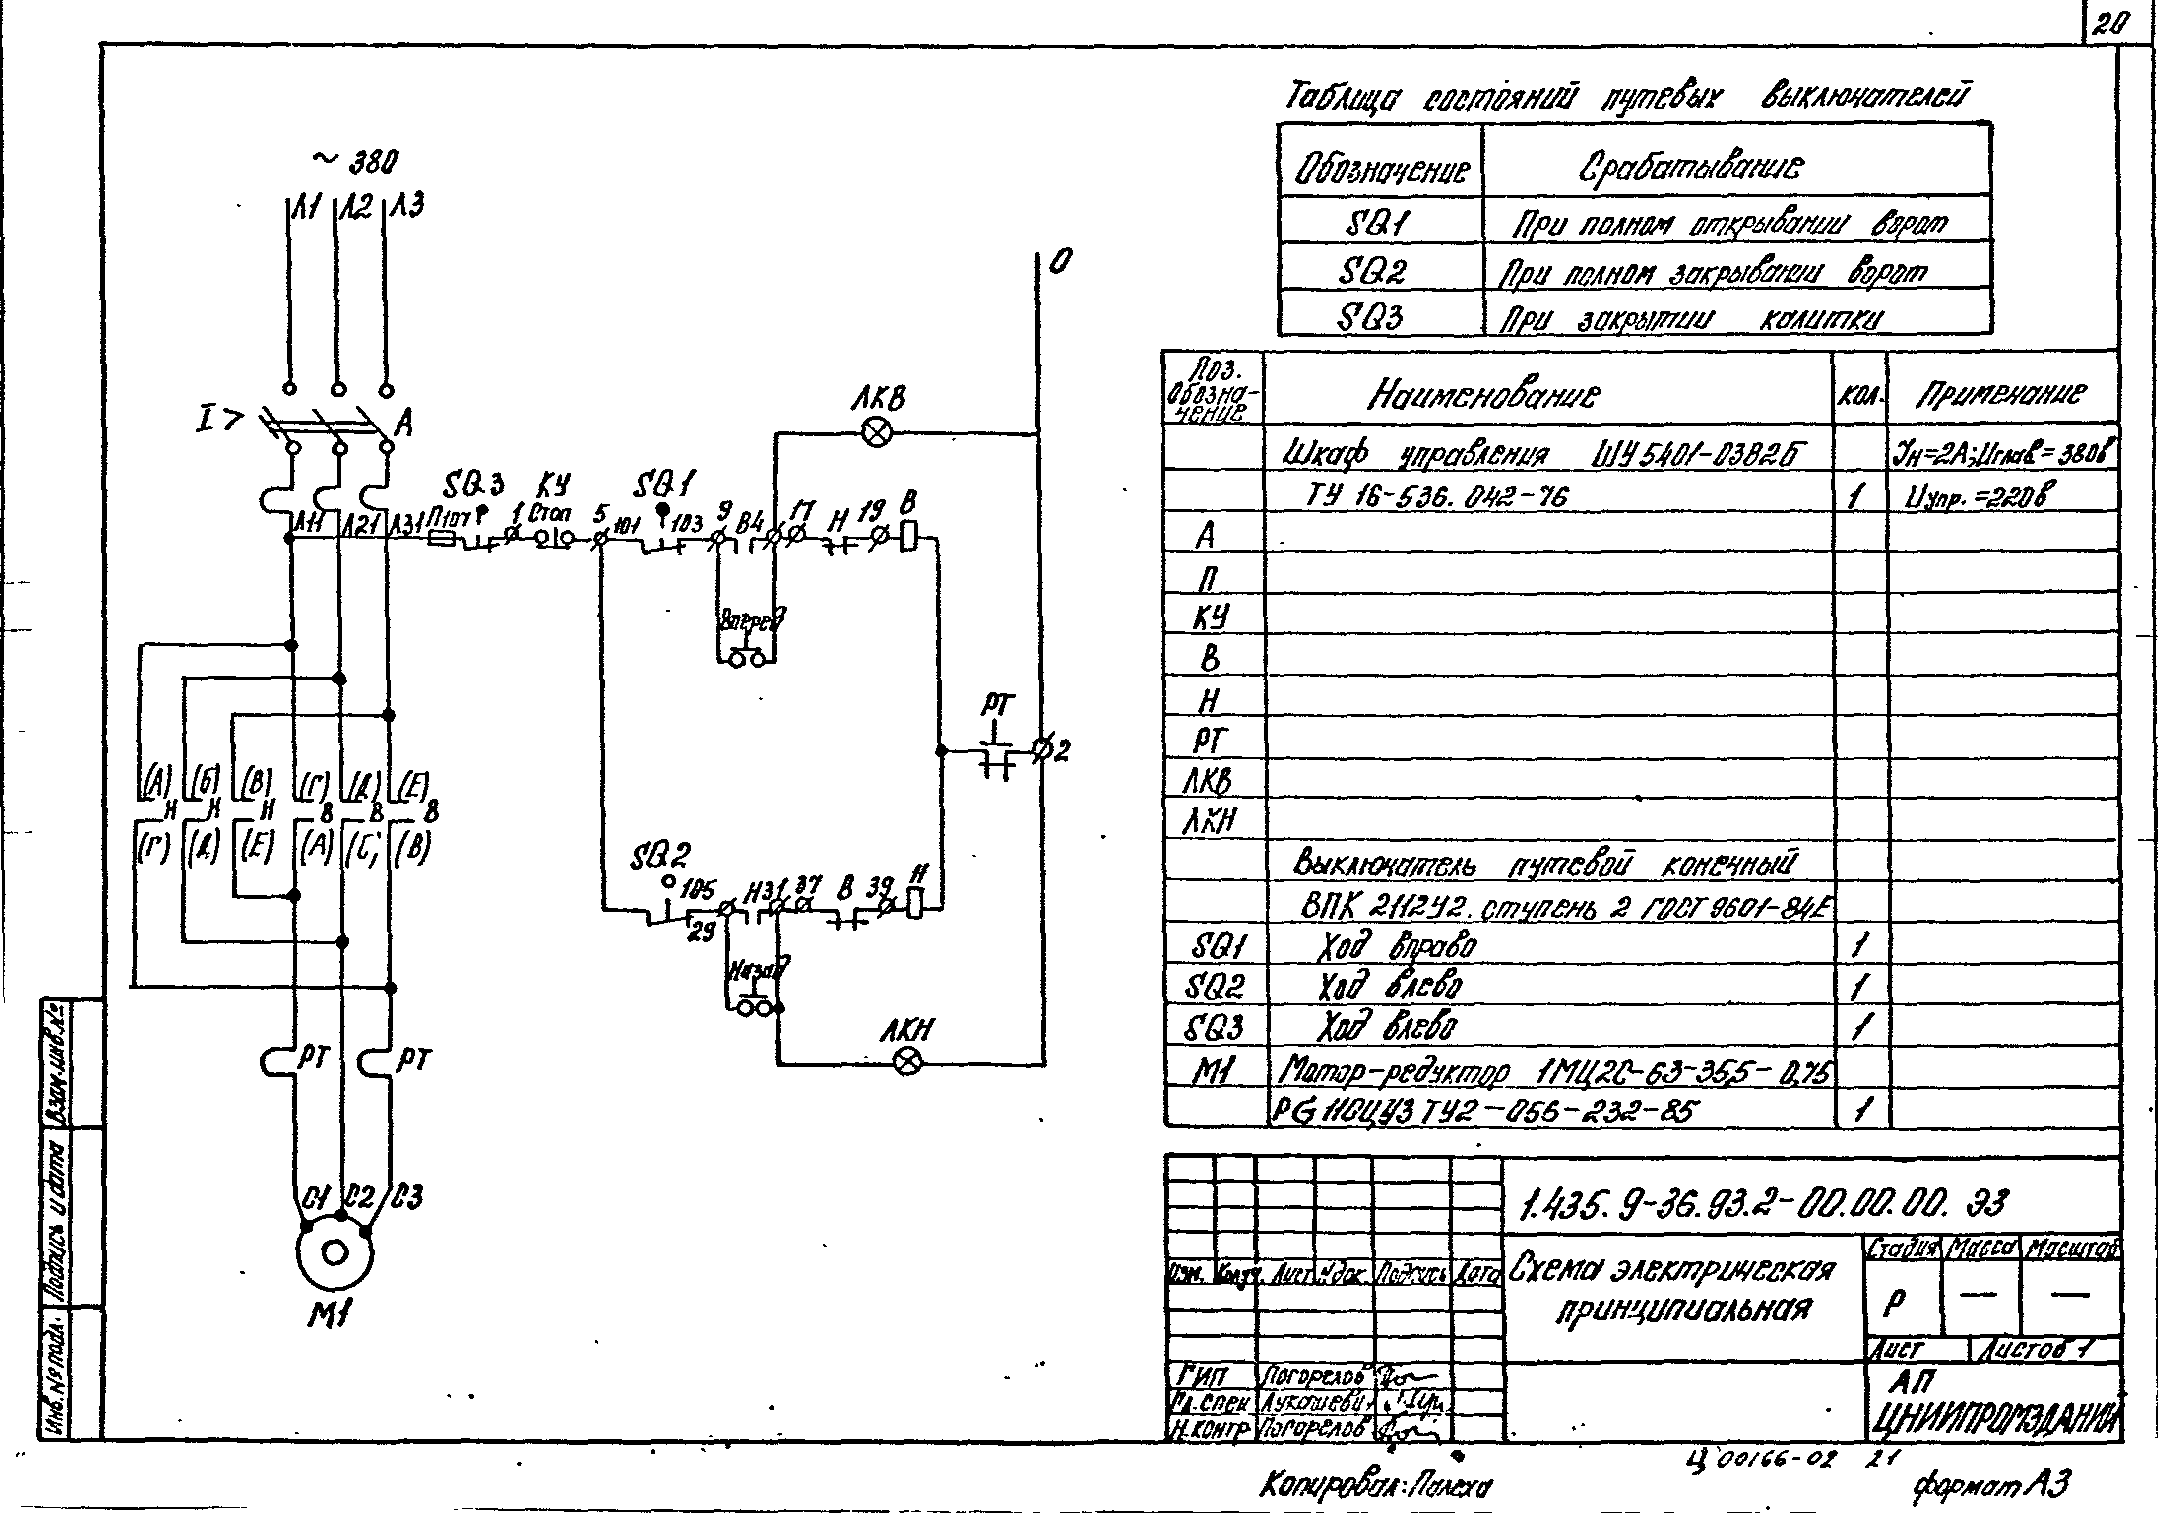 20
~ 380
Л1 Л2 Л3
0
I > А
ЛКВ
SQ3 КУ SQ1
Л11 Л21 Л31 П 1 Стоп 5 101 103 9 В4 17 Н 19 В
Вперед
РТ
2
(А) (Б) (В) (Г) (Д) (Е)
Н Н Н В В В
(Г) (Д) (Е) (А) (С) (В)
SQ2
105 Н 31 37 В 39 Н
29
Назад
ЛКН
РТ РТ
С1 С2 С3
М1
Таблица состояний путевых выключателей
Обозначение Срабатывание
SQ1 При полном открывании ворот
SQ2 При полном закрывании ворот
SQ3 При закрытии калитки
Поз. обозна-чение Наименование кол. Примечание
Шкаф управления ШУ5401-03В2Б Iн=2А;Uглав=380в
ТУ 16-536.042-76 1 Uупр.=220в
А
П
КУ
В
Н
РТ
ЛКВ
ЛКН
Выключатель путевой конечный
ВПК 2112У2. ступень 2 ГОСТ 9601-84Е
SQ1 Ход вправо 1
SQ2 Ход влево 1
SQ3 Ход влево 1
М1 Мотор-редуктор 1МЦ2С-63-35,5-0,75
РG110ЦУ3 ТУ2-056-232-85 1
1.435.9-36.93.2-00.00.00. ЭЗ
Изм. Кол.уч. Лист №док. Подпись Дата
Схема электрическая
принципиальная
Стадия Масса Масштаб
Р — —
Лист Листов 1
ГИП Погорелов
Гл.спец Лукашевич
Н.контр Погорелов
АП
ЦНИИПРОМЗДАНИЙ
Взам.инв.№
Подпись и дата
Инв.№ подл.
Ц00166-02 21
Копировал: Палеха
формат А3